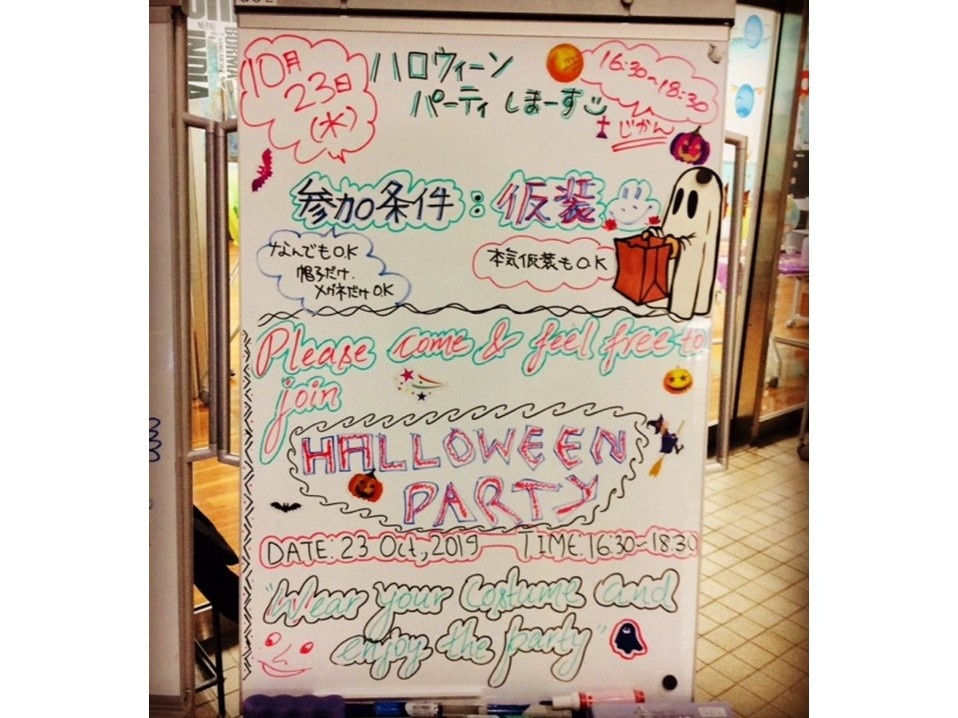 10月
23日
(水)
ハロウィーン
パーティ しまーす
16:30~18:30
じかん
参加条件:仮装
なんでもO.K
帽子だけ.
メガネだけO.K
本気仮装もO.K
Please come & feel free to
join
HALLOWEEN
PARTY
DATE: 23 Oct, 2019 TIME: 16:30-18:30
"Wear your Costume and
enjoy the party"
INDIA
NEPAL